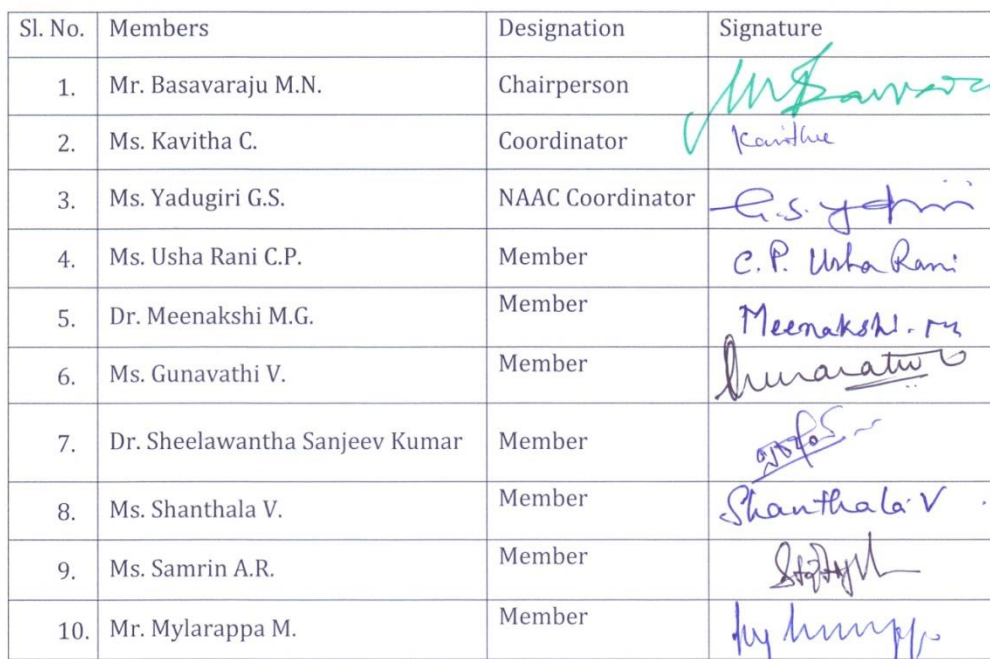 Sl. No. Members Designation Signature
1. Mr. Basavaraju M.N. Chairperson
2. Ms. Kavitha C. Coordinator Kavitha
3. Ms. Yadugiri G.S. NAAC Coordinator G.S. Yadugiri
4. Ms. Usha Rani C.P. Member C. P. Usha Rani
5. Dr. Meenakshi M.G. Member Meenakshi. M
6. Ms. Gunavathi V. Member Gunavathi
7. Dr. Sheelawantha Sanjeev Kumar Member
8. Ms. Shanthala V. Member Shanthala V
9. Ms. Samrin A.R. Member
10. Mr. Mylarappa M. Member